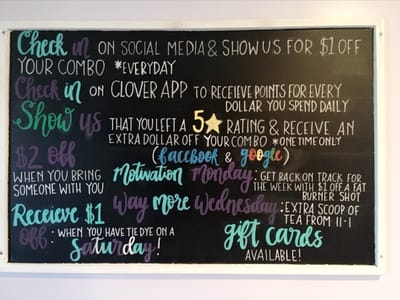 Check in ON SOCIAL MEDIA & SHOW US FOR $1 OFF
YOUR COMBO *EVERYDAY
Check in ON CLOVER APP TO RECEIEVE POINTS FOR EVERY
DOLLAR YOU SPEND DAILY
Show us THAT YOU LEFT A 5★ RATING & RECEIVE AN
EXTRA DOLLAR OFF YOUR COMBO *ONE TIME ONLY
(facebook & google)
$2 off
WHEN YOU BRING
SOMEONE WITH YOU
Motivation Monday: GET BACK ON TRACK FOR
THE WEEK WITH $1 OFF A FAT
BURNER SHOT
Way more Wednesday: EXTRA SCOOP OF
TEA FROM 11-1
Receieve $1
Off: WHEN YOU HAVE TIE DYE ON A
Saturday!
gift cards
AVAILABLE!